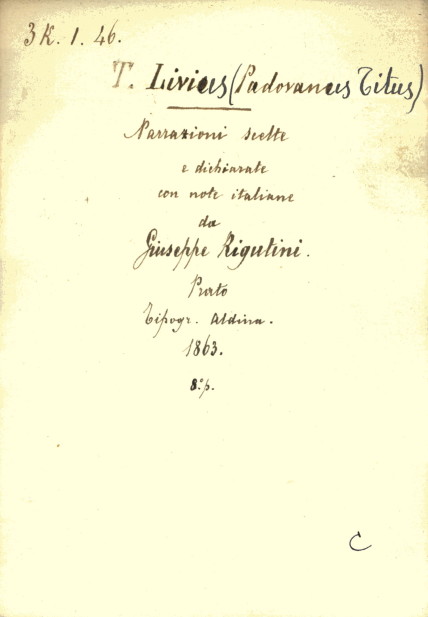 3K. 1. 46.
T. Livius (Padovanus Titus)
Narrazioni scelte
e dichiarate
con note italiane
da
Giuseppe Rigutini.
Prato
Tipogr. Aldina.
1863.
8.° p.
C